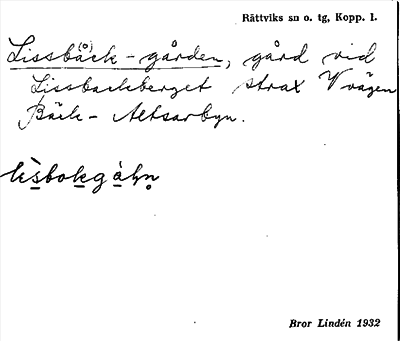 Rättviks sn o. tg, Kopp. l.
Lissbäck(o)-gården, gård vid
Lissbackberget strax V vägen
Bäck - Altsarbyn.
Bror Lindén 1932